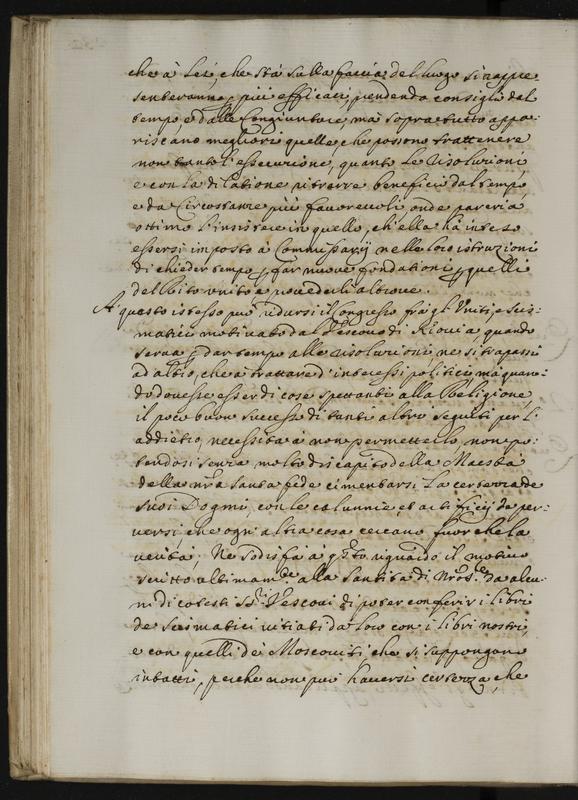 che à Lei, che stà sulla faccia del luogo si rappre
senteranno più efficaci, prendendo consiglio dal
tempo, e dalle congiunture, mà sopra tutto appa-
riscano megliori quelle, che possono trattenere
non tanto l'essecutione, quanto le risolutioni,
e con la dilatione pitrarre beneficii dal tempo,
e da circostanze più favorevoli, onde pareria
ottimo l'insistere in quello, ch'ella hà inteso
essersi imposto à Commissarij nelle loro istruzioni
di chieder tempo p far nuove fondationi p quelli
del Rito unito e provederli altrove.
A questo istesso può ridursi il Congresso frà gl'Uniti, e Scis-
matici motivato dal Vescovo di Kiovia, quando
serva p dar tempo alle risolutioni, ne si trapassi
ad altro, che à trattare d'interessi politici, mà quan-
do dovesse esser di cose spettanti alla Religione,
il poco buon successo di tanti altri seguiti per l'
addietro, necessita à non permetterlo, non po-
tendosi senza molto discapito della Maestà
della nra Santa fede cimentarsi la certezza de
suoi Dogmi, con le calunnie et artificij de per-
versi che ogn'altra cosa cercano fuor che la
verità, Ne sodisfà à qsto riguardo il motivo
scritto ultimamte alla Santità di Nro Sre da alcu-
ni di cotesti Ssri Vescovi di poter conferir i libri
de Scismatici vitiati da loro con i libri nostri,
e con quelli de Moscoviti che si suppongono
intatti, perche non può haversi certezza, che